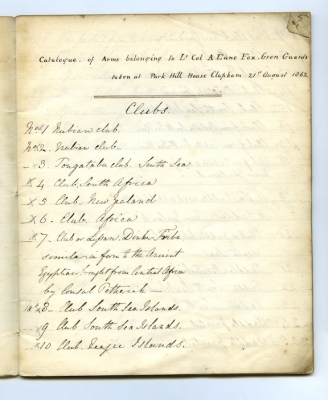 5
Catalogue of Arms belonging to Lt Col A Lane Fox. Gren Guards
taken at Park Hill House Clapham 21st August 1862
Clubs.
No 1 Nubian club.
No 2. Nubian club.
- 3. Tongatabu club. South Sea
x 4 Club, South Africa
x 5 Club. New zealand
- x 6 - Club. Africa
x 7. Club or Lissan. Dinka Tribe
similar in form to the Ancient
Egyptian brought from Central Africa
by Consul Petherick -
No x 8 - Club South Sea Islands.
x 9 Club South Sea Islands.
x 10 Club. Islands.